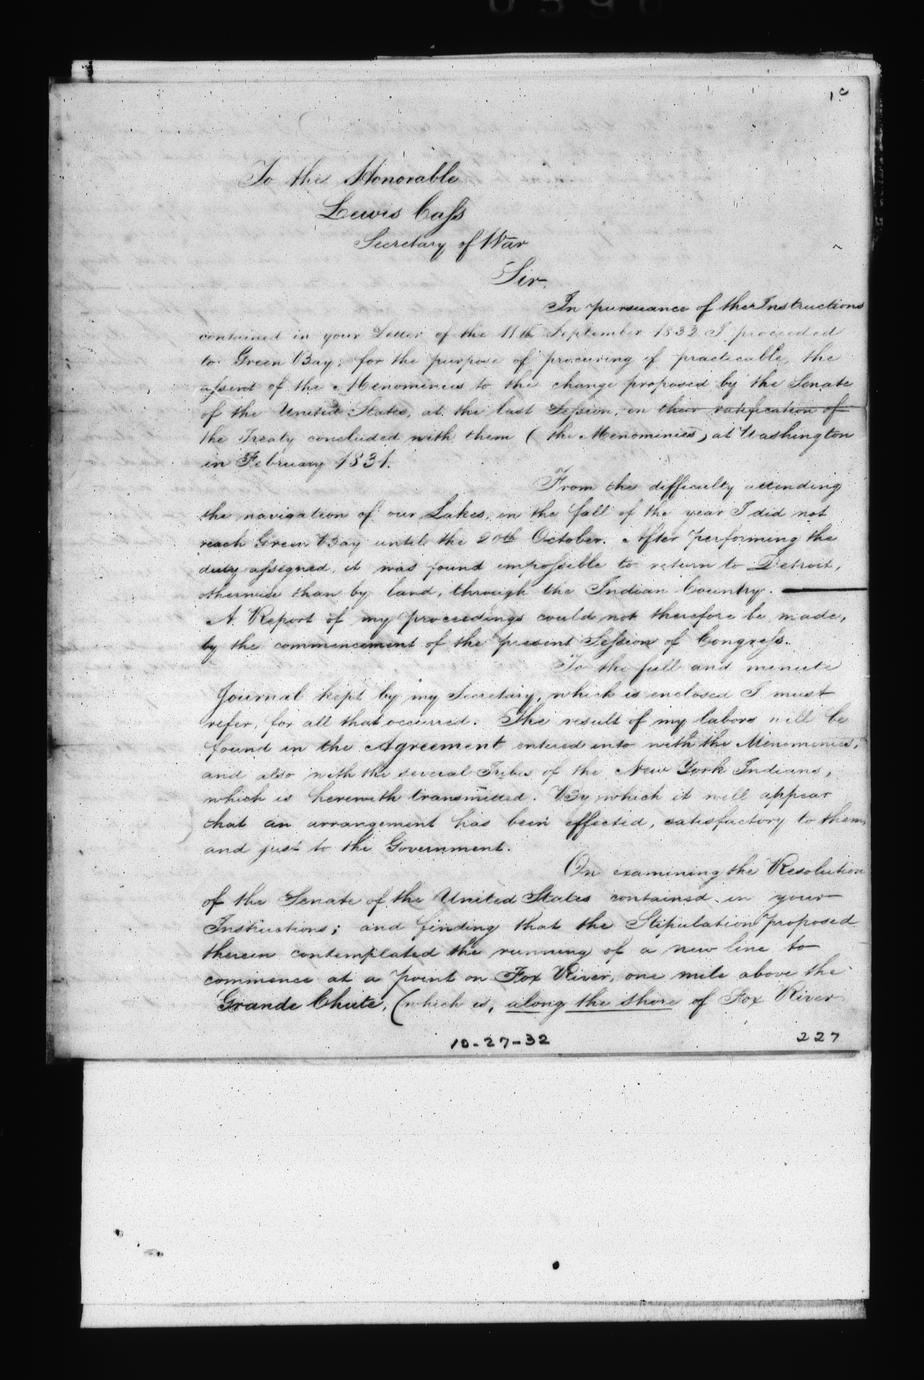 1
To the Honorable
Lewis Cass
Secretary of War
Sir
In pursuance of the Instructions
contained in your Letter of the 11th September 1832 I proceeded
to Green Bay, for the purpose of procuring if practicable, the
assent of the Menominies to the change proposed by the Senate
of the United States, at the last Session, in their ratification of
the Treaty concluded with them (the Menominies) at Washington
in February 1831.
From the difficulty attending
the navigation of our Lakes, in the fall of the year I did not
reach Green Bay until the 20th October. After performing the
duty assigned, it was found impossible to return to Detroit,
otherwise than by land, through the Indian Country.
A Report of my proceedings could not therefore be made,
by the commencement of the present Session of Congress.
To the full and minute
Journal kept by my Secretary, which is enclosed I must
refer, for all that occurred. The result of my labors will be
found in the Agreement entered into with the Menominies,
and also with the several Tribes of the New York Indians,
which is herewith transmitted. By which it will appear
that an arrangement has been effected, satisfactory to them
and just to the Government.
On examining the Resolution
of the Senate of the United States contained in your
Instructions; and finding that the Stipulation proposed
therein contemplated the running of a new line to
commence at a point on Fox River, one mile above the
Grande Chute, (which is, along the shore of Fox River
10-27-32
227